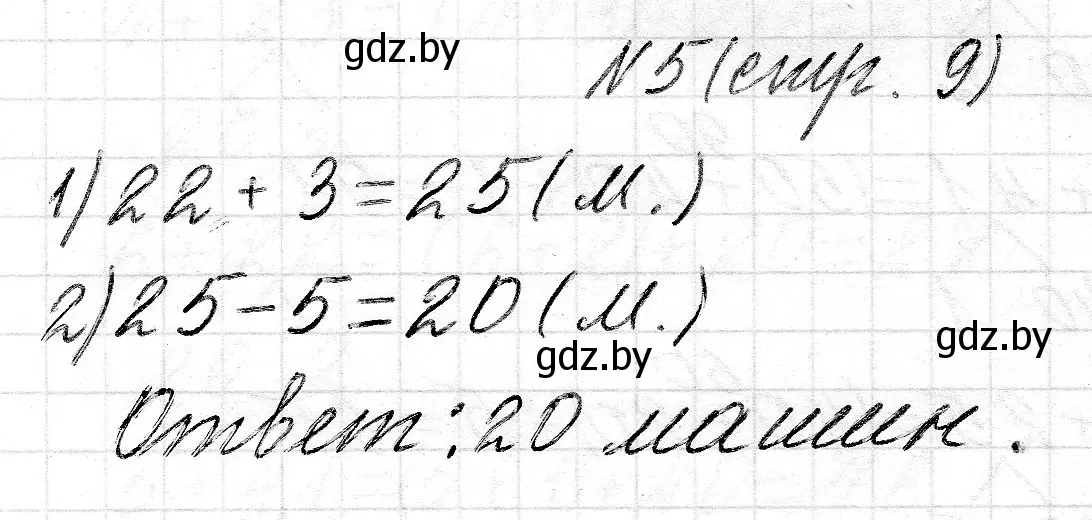 gdz.by
N 5 (стр. 9)
1) 22 + 3 = 25 (м.)
2) 25 - 5 = 20 (м.)
gdz.by
gdz.by
Ответ: 20 машин.